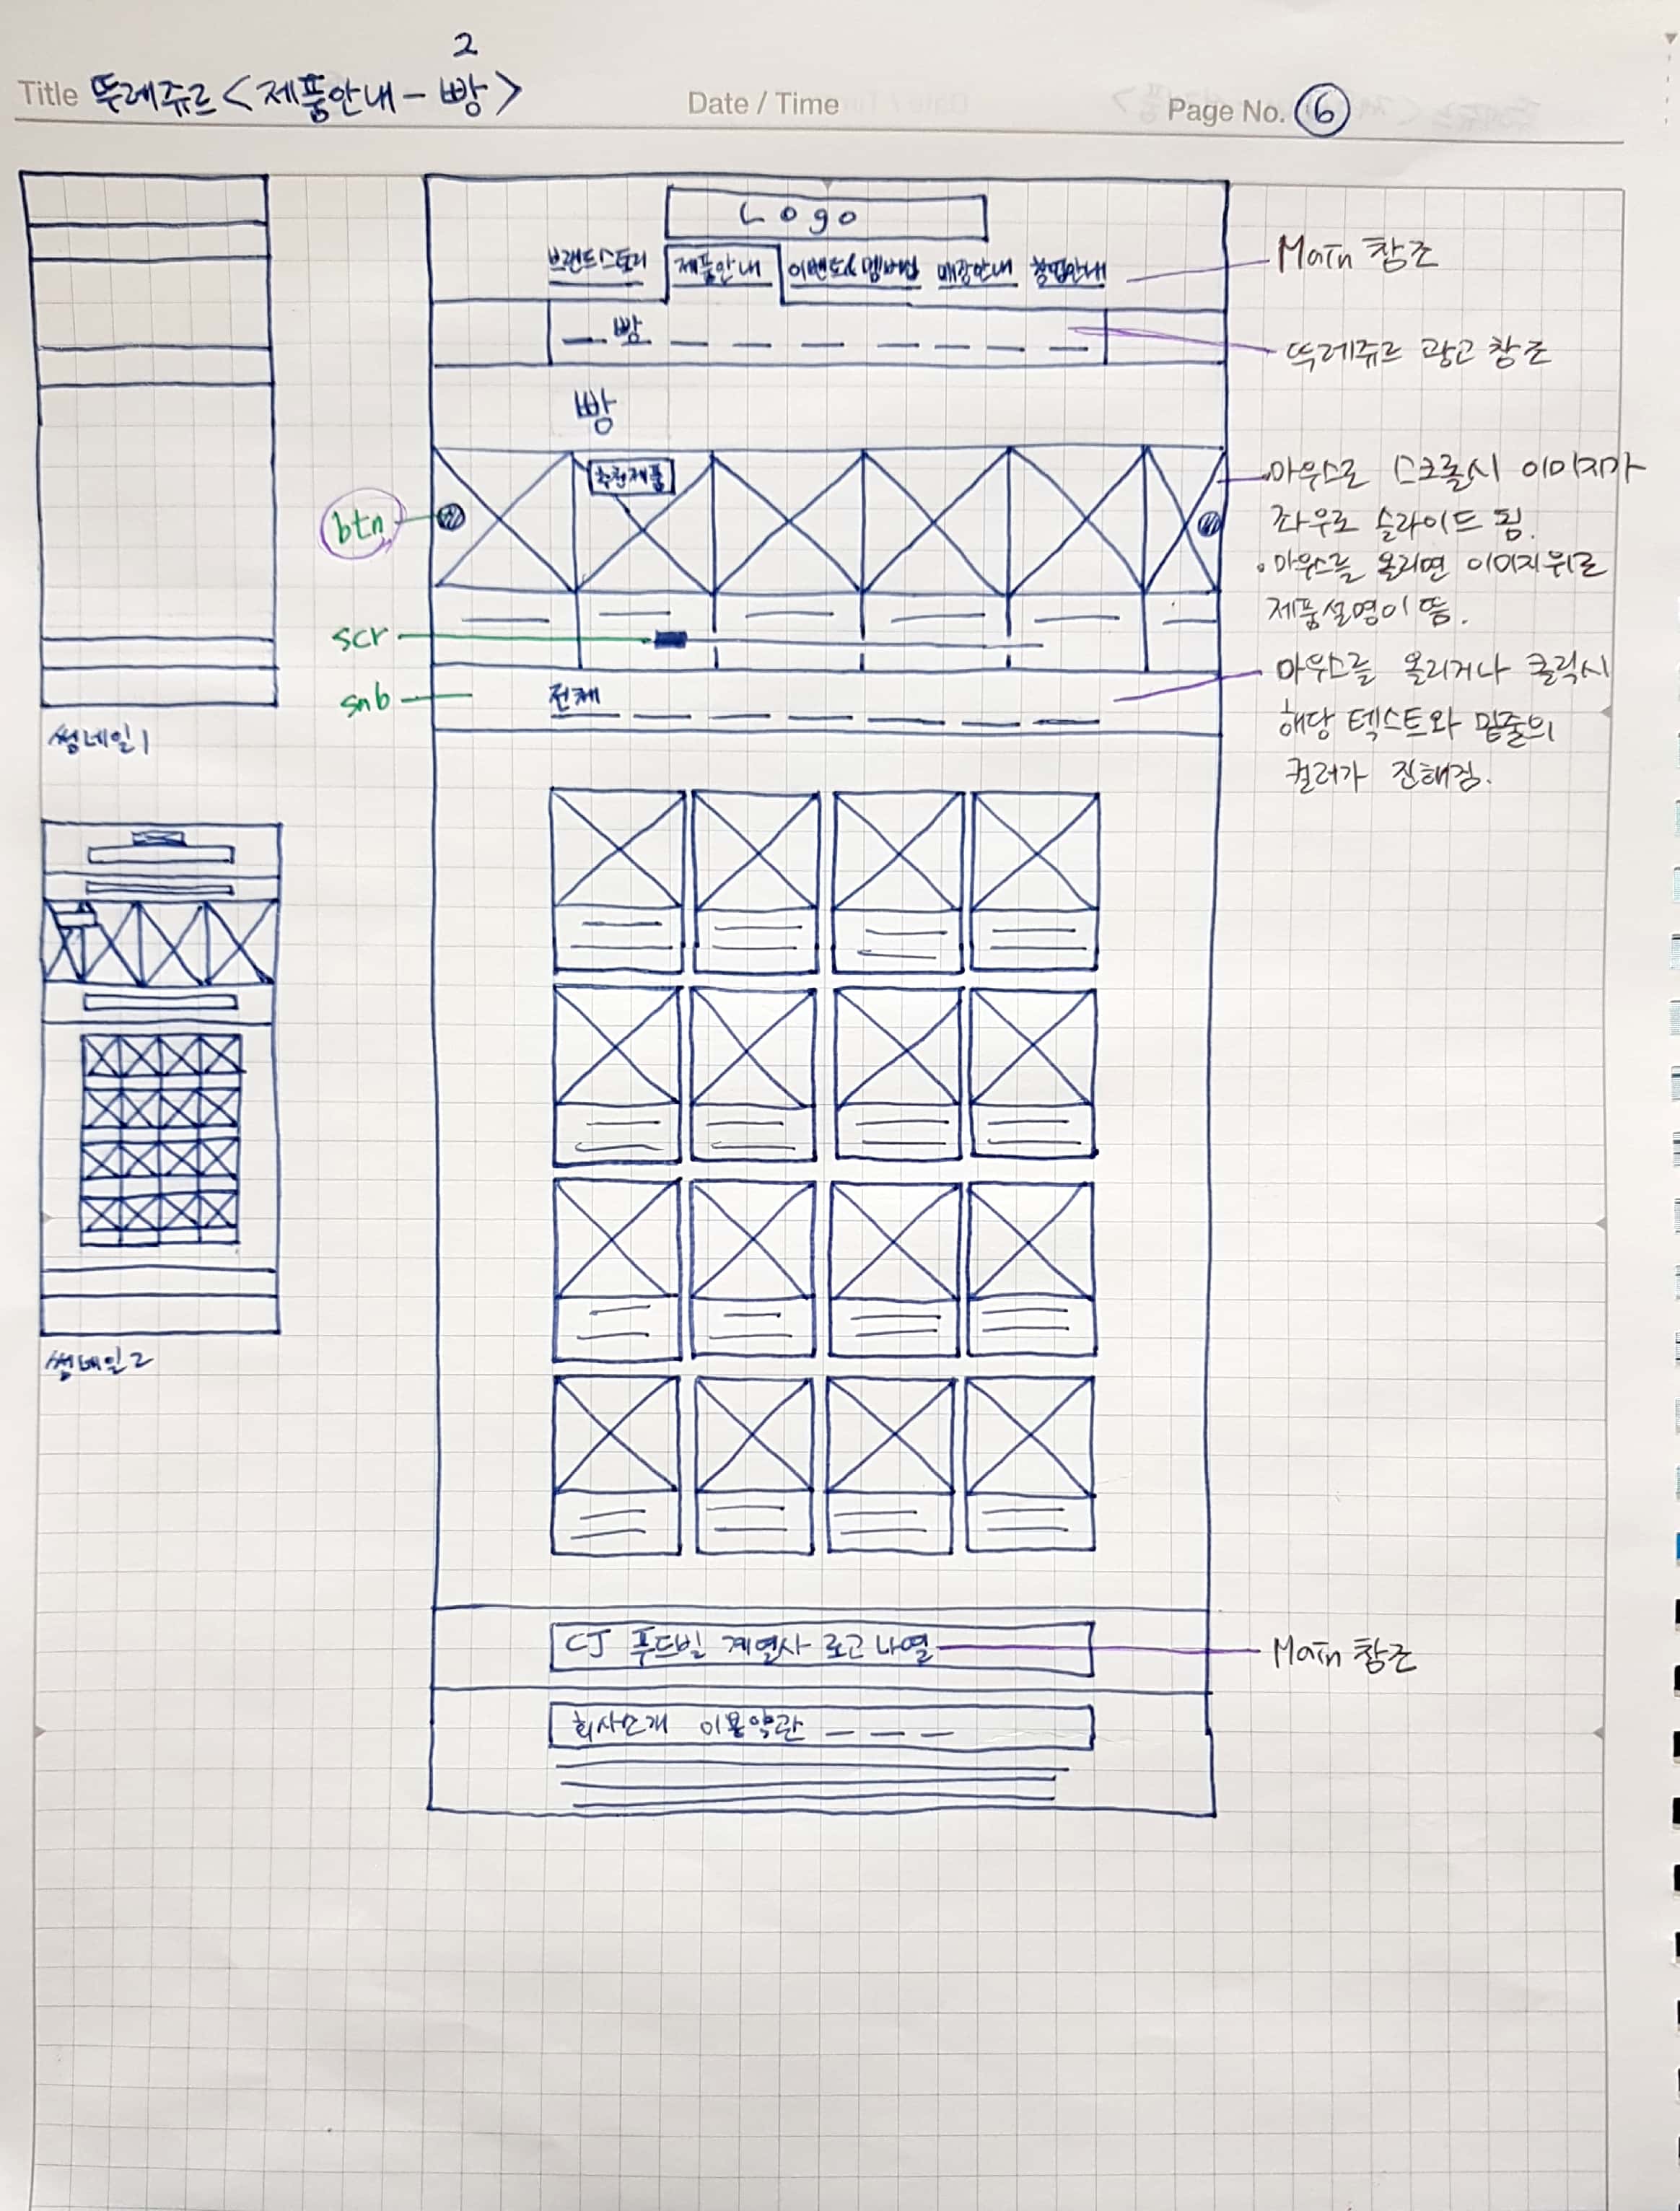 2
Title 뚜레쥬르 <제품안내 - 빵>
Date / Time
Page No. 6
Logo
브랜드스토리 제품안내 이벤트&멤버십 매장안내 창업안내
Main 참조
빵
뚜레쥬르 광고 참조
빵
추천제품
btn
마우스로 스크롤시 이미지가
좌우로 슬라이드 됨.
• 마우스를 올리면 이미지위로
제품설명이 뜸.
scr
snb
전체
마우스를 올리거나 클릭시
해당 텍스트와 밑줄의
컬러가 진해짐.
썸네일1
썸네일2
CJ 푸드빌 계열사 로고 나열
Main 참조
회사소개 이용약관